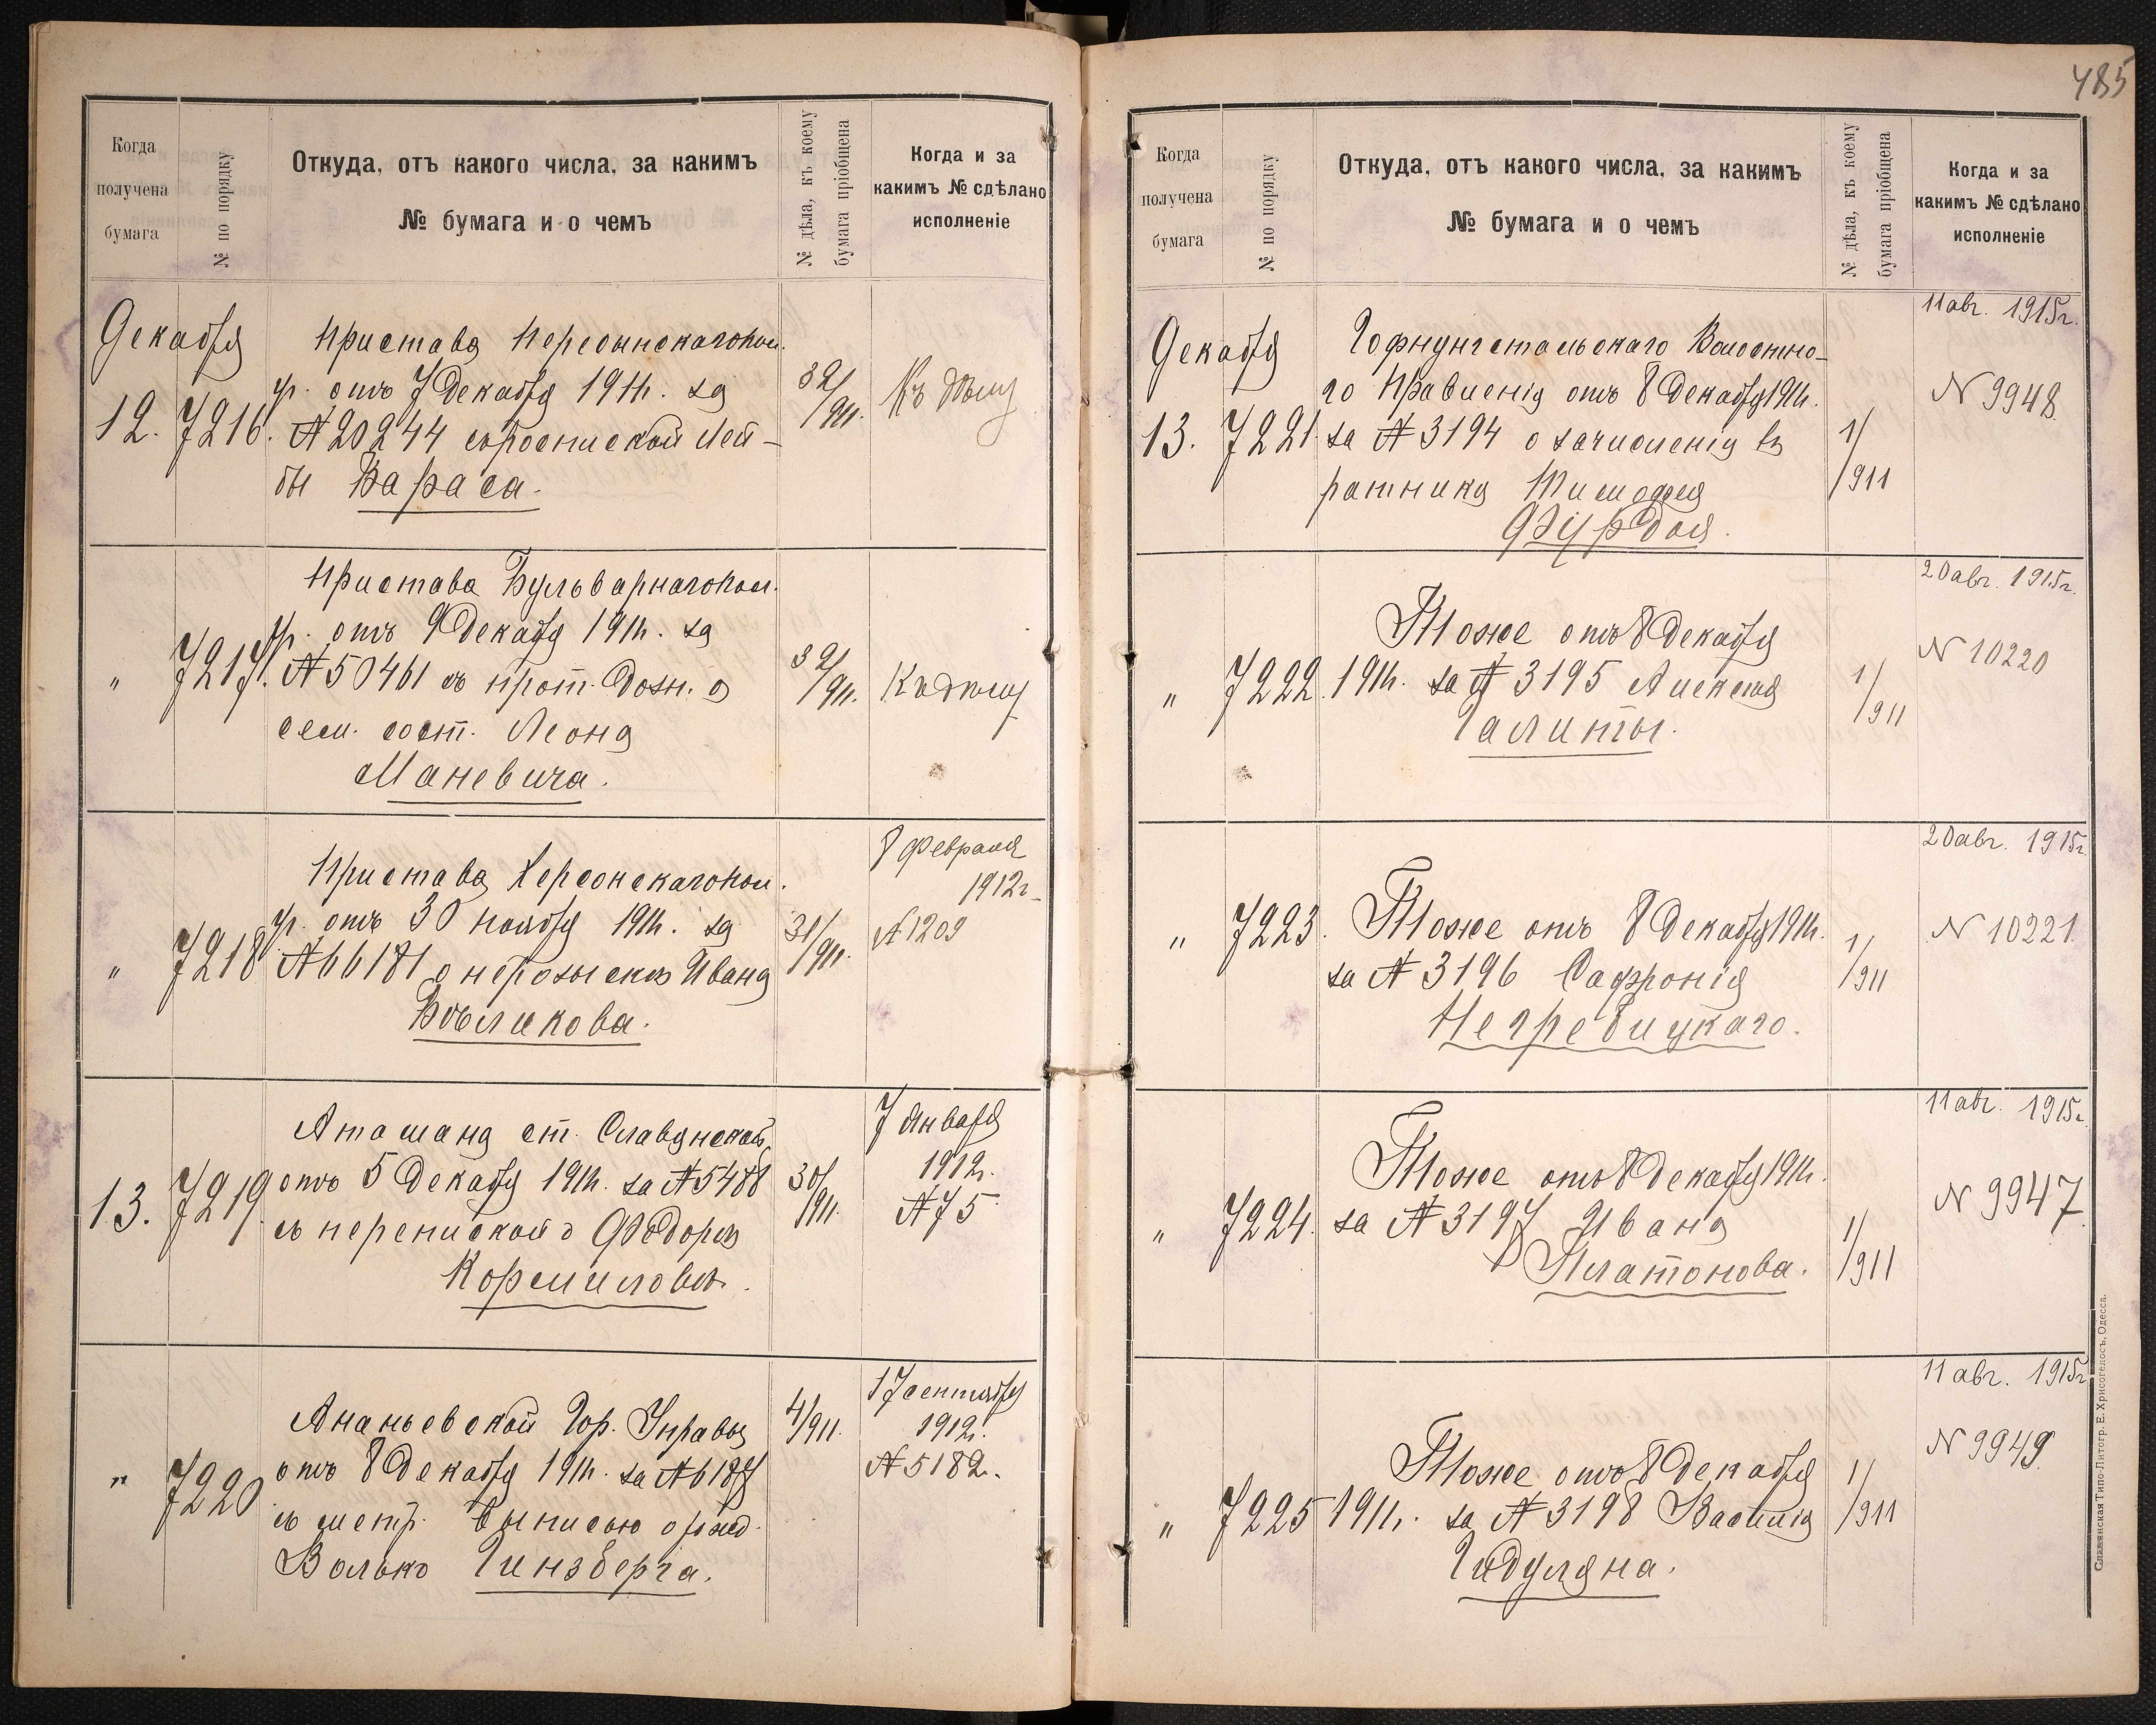 485
Когда
получена
бумага
№ по порядку
Откуда, отъ какого числа, за какимъ
№ бумага и о чемъ
№ дѣла, къ коему
бумага пріобщена
Когда и за
какимъ № сдѣлано
исполненіе
Декабря
12.
7216.
Пристава Херсонскагополи.
уч. отъ 7 Декабря 1911г. за
№ 20244 съ роспиской Лей-
бы Вараса.
32/911.
Къ дѣлу
"
7217.
Пристава Бульварнагополи.
уч. отъ 9 Декабря 1911г. за
№ 50461 съ прот. дозн. о
сем. сост. Леона
Маневича.
32/911.
Къ дѣлу
"
7218
Пристава Херсонскагополи.
уч. отъ 30 ноября 1911г. за
№ 66181 о нерозыскѣ Ивана
Бѣликова.
31/911.
8 Февраля
1912г.
№ 1209
13.
7219
Атамана ст. Славянской,
отъ 5 Декабря 1911г. за № 5488
съ перепиской о Ѳедорѣ
Кормиловѣ.
30/911.
7 Января
1912г.
№ 75
"
7220
Ананьевской Гор. Управы
отъ 8 Декабря 1911г. за № 6187
съ метр. выписью о рожд.
Волько Гинзберга.
4/911.
17 сентября
1912г.
№ 5182.
Когда
получена
бумага
№ по порядку
Откуда, отъ какого числа, за какимъ
№ бумага и о чемъ
№ дѣла, къ коему
бумага пріобщена
Когда и за
какимъ № сдѣлано
исполненіе
Декабря
13.
7221.
Гофнунгстальскаго Волостно-
го Правленія отъ 8 Декабря 1911г.
за № 3194 о зачисленіи въ
ратники Тимофея
Фурдоя.
1/911
11 авг. 1915г.
№ 9948.
"
7222.
Тоже отъ 8 Декабря
1911г. за № 3195 Алексѣя
Галиты.
1/911
20 авг. 1915г.
№ 10220
"
7223.
Тоже отъ 8 Декабря 1911г.
за № 3196 Сафронія
Негребицкаго.
1/911
20 авг. 1915г.
№ 10221.
"
7224.
Тоже отъ 8 Декабря 1911г.
за № 3197 Ивана
Платонова.
1/911
11 авг. 1915г.
№ 9947.
"
7225
Тоже отъ 8 Декабря
1911г. за № 3198 Василія
Гидуляна.
1/911
11 авг. 1915г.
№ 9949.
Славянская Типо-Литогр. Е. Хрисогелосъ, Одесса.